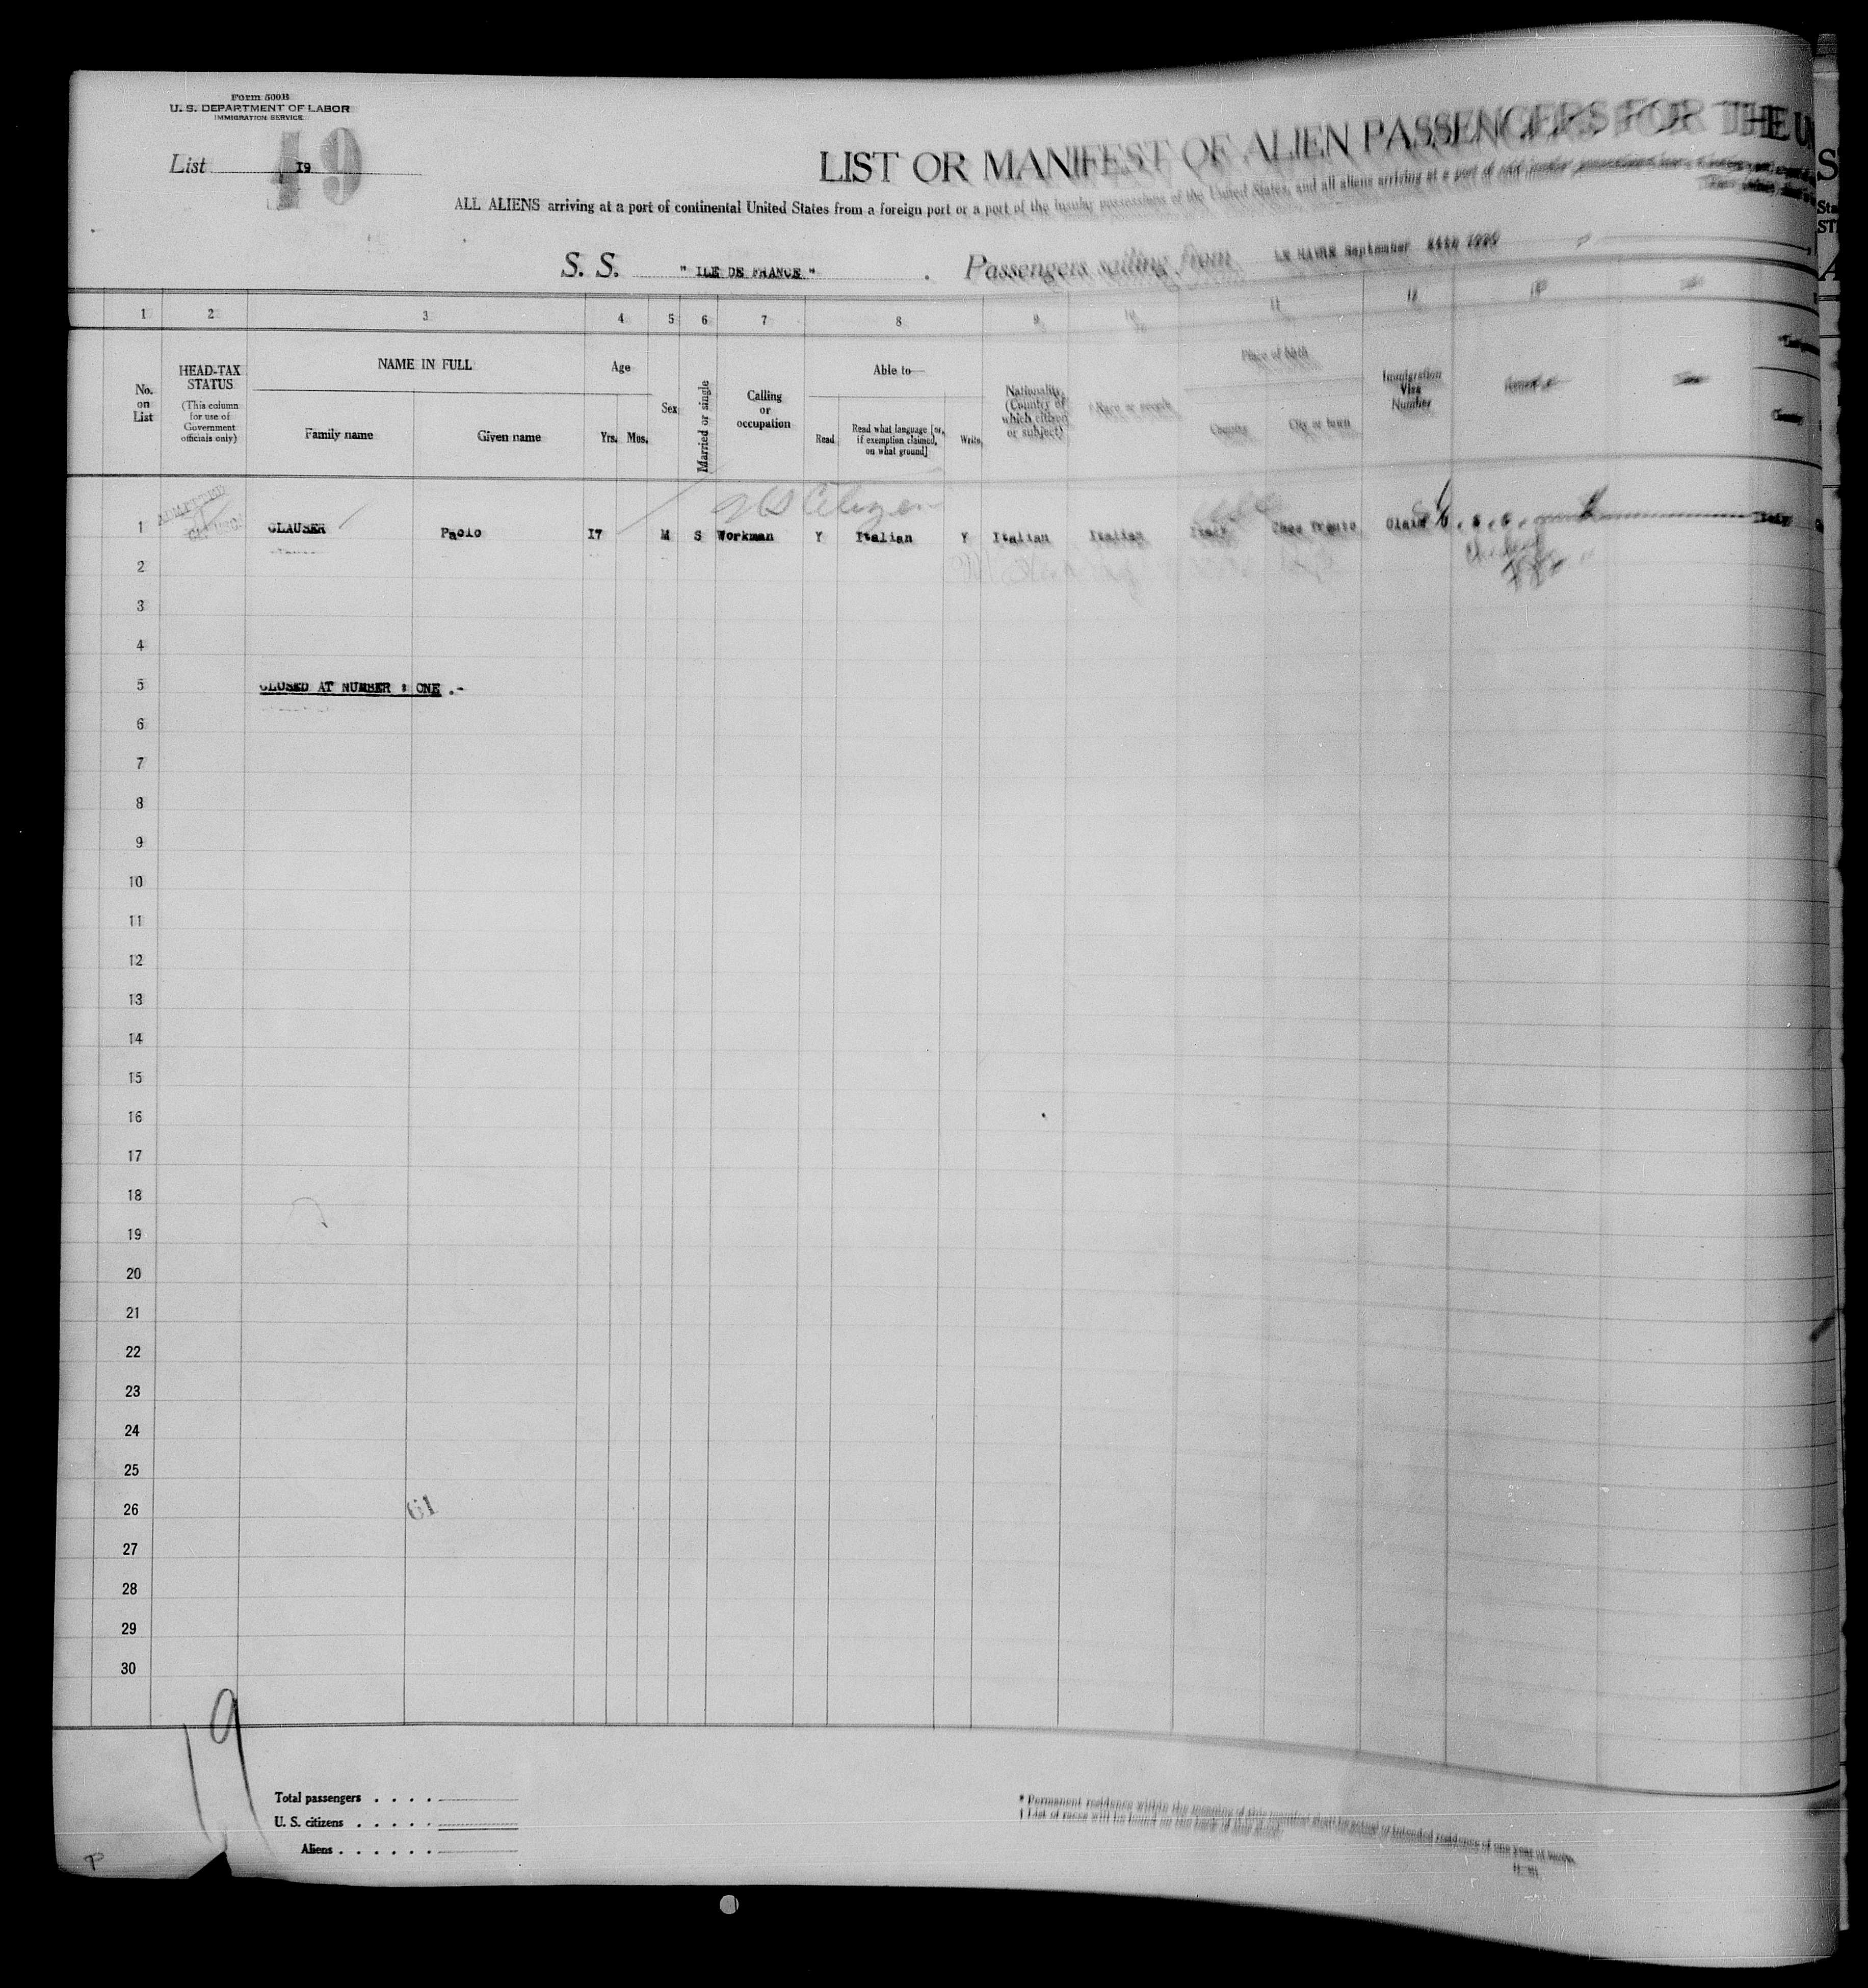 Form 500B
U. S. DEPARTMENT OF LABOR
IMMIGRATION SERVICE
List I9
49
LIST OR MANIFEST OF ALIEN PASSENGERS FOR THE U
ALL ALIENS arriving at a port of continental United States from a foreign port or a port of the insular possessions of the United States, and all aliens arriving at a port of said insular possessions
S. S. " ILE DE FRANCE " . Passengers sailing from LE HAVRE September
1 2 3 4 5 6 7 8 9 10 11 12
No. on List
HEAD-TAX STATUS
(This column for use of Government officials only)
NAME IN FULL
Family name
Given name
Age
Yrs. Mos.
Sex
Married or single
Calling or occupation
Able to—
Read
Read what language [or, if exemption claimed, on what ground]
Write
Nationality (Country of which citizen or subject)
† Race or people
Place of birth
Country
City or town
Immigration Visa Number
ADMITTED
US Citizen
1 GLAUSER Paolo I7 M S Workman Y Italian Y Italian Italian Italy Claim Italy
2
3
4
5 CLOSED AT NUMBER : ONE .-
6
7
8
9
10
11
12
13
14
15
16
17
18
19
20
21
22
23
24
25
26
61
27
28
29
30
19
Total passengers . . . .
U. S. citizens . . . . .
Aliens . . . . . .
* Permanent residence within the meaning of this manifest shall be actual or intended residence of one year or more.
† List of races will be found on the back of this sheet.
P